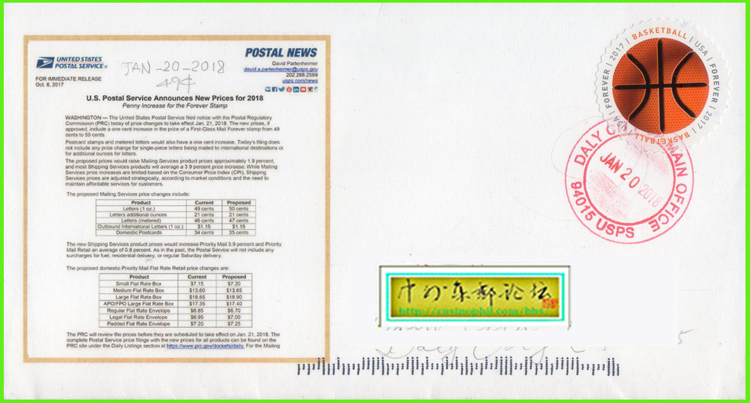 UNITED STATES
POSTAL SERVICE®
POSTAL NEWS
JAN-20-2018
49¢
FOR IMMEDIATE RELEASE
Oct. 6, 2017
David Partenheimer
david.a.partenheimer@usps.gov
202.268.2599
usps.com/news
U.S. Postal Service Announces New Prices for 2018
Penny Increase for the Forever Stamp
WASHINGTON — The United States Postal Service filed notice with the Postal Regulatory
Commission (PRC) today of price changes to take effect Jan. 21, 2018. The new prices, if
approved, include a one cent increase in the price of a First-Class Mail Forever stamp from 49
cents to 50 cents.
Postcard stamps and metered letters would also have a one cent increase. Today's filing does
not include any price change for single-piece letters being mailed to international destinations or
for additional ounces for letters.
The proposed prices would raise Mailing Services product prices approximately 1.9 percent,
and most Shipping Services products will average a 3.9 percent price increase. While Mailing
Services price increases are limited based on the Consumer Price Index (CPI), Shipping
Services prices are adjusted strategically, according to market conditions and the need to
maintain affordable services for customers.
The proposed Mailing Services price changes include:
Product Current Proposed
Letters (1 oz.) 49 cents 50 cents
Letters additional ounces 21 cents 21 cents
Letters (metered) 46 cents 47 cents
Outbound International Letters (1 oz.) $1.15 $1.15
Domestic Postcards 34 cents 35 cents
The new Shipping Services product prices would increase Priority Mail 3.9 percent and Priority
Mail Retail an average of 0.8 percent. As in the past, the Postal Service will not include any
surcharges for fuel, residential delivery, or regular Saturday delivery.
The proposed domestic Priority Mail Flat Rate Retail price changes are:
Product Current Proposed
Small Flat Rate Box $7.15 $7.20
Medium Flat Rate Box $13.60 $13.65
Large Flat Rate Box $18.85 $18.90
APO/FPO Large Flat Rate Box $17.35 $17.40
Regular Flat Rate Envelope $6.65 $6.70
Legal Flat Rate Envelope $6.95 $7.00
Padded Flat Rate Envelope $7.20 $7.25
The PRC will review the prices before they are scheduled to take effect on Jan. 21, 2018. The
complete Postal Service price filings with the new prices for all products can be found on the
PRC site under the Daily Listings section at https://www.prc.gov/dockets/daily. For the Mailing
BASKETBALL | USA | FOREVER | 2017 | BASKETBALL | USA | FOREVER | 2017 |
DALY MAIN OFFICE
JAN 20 2018
94015 USPS
http://cnsinophil.com/bbs/
5